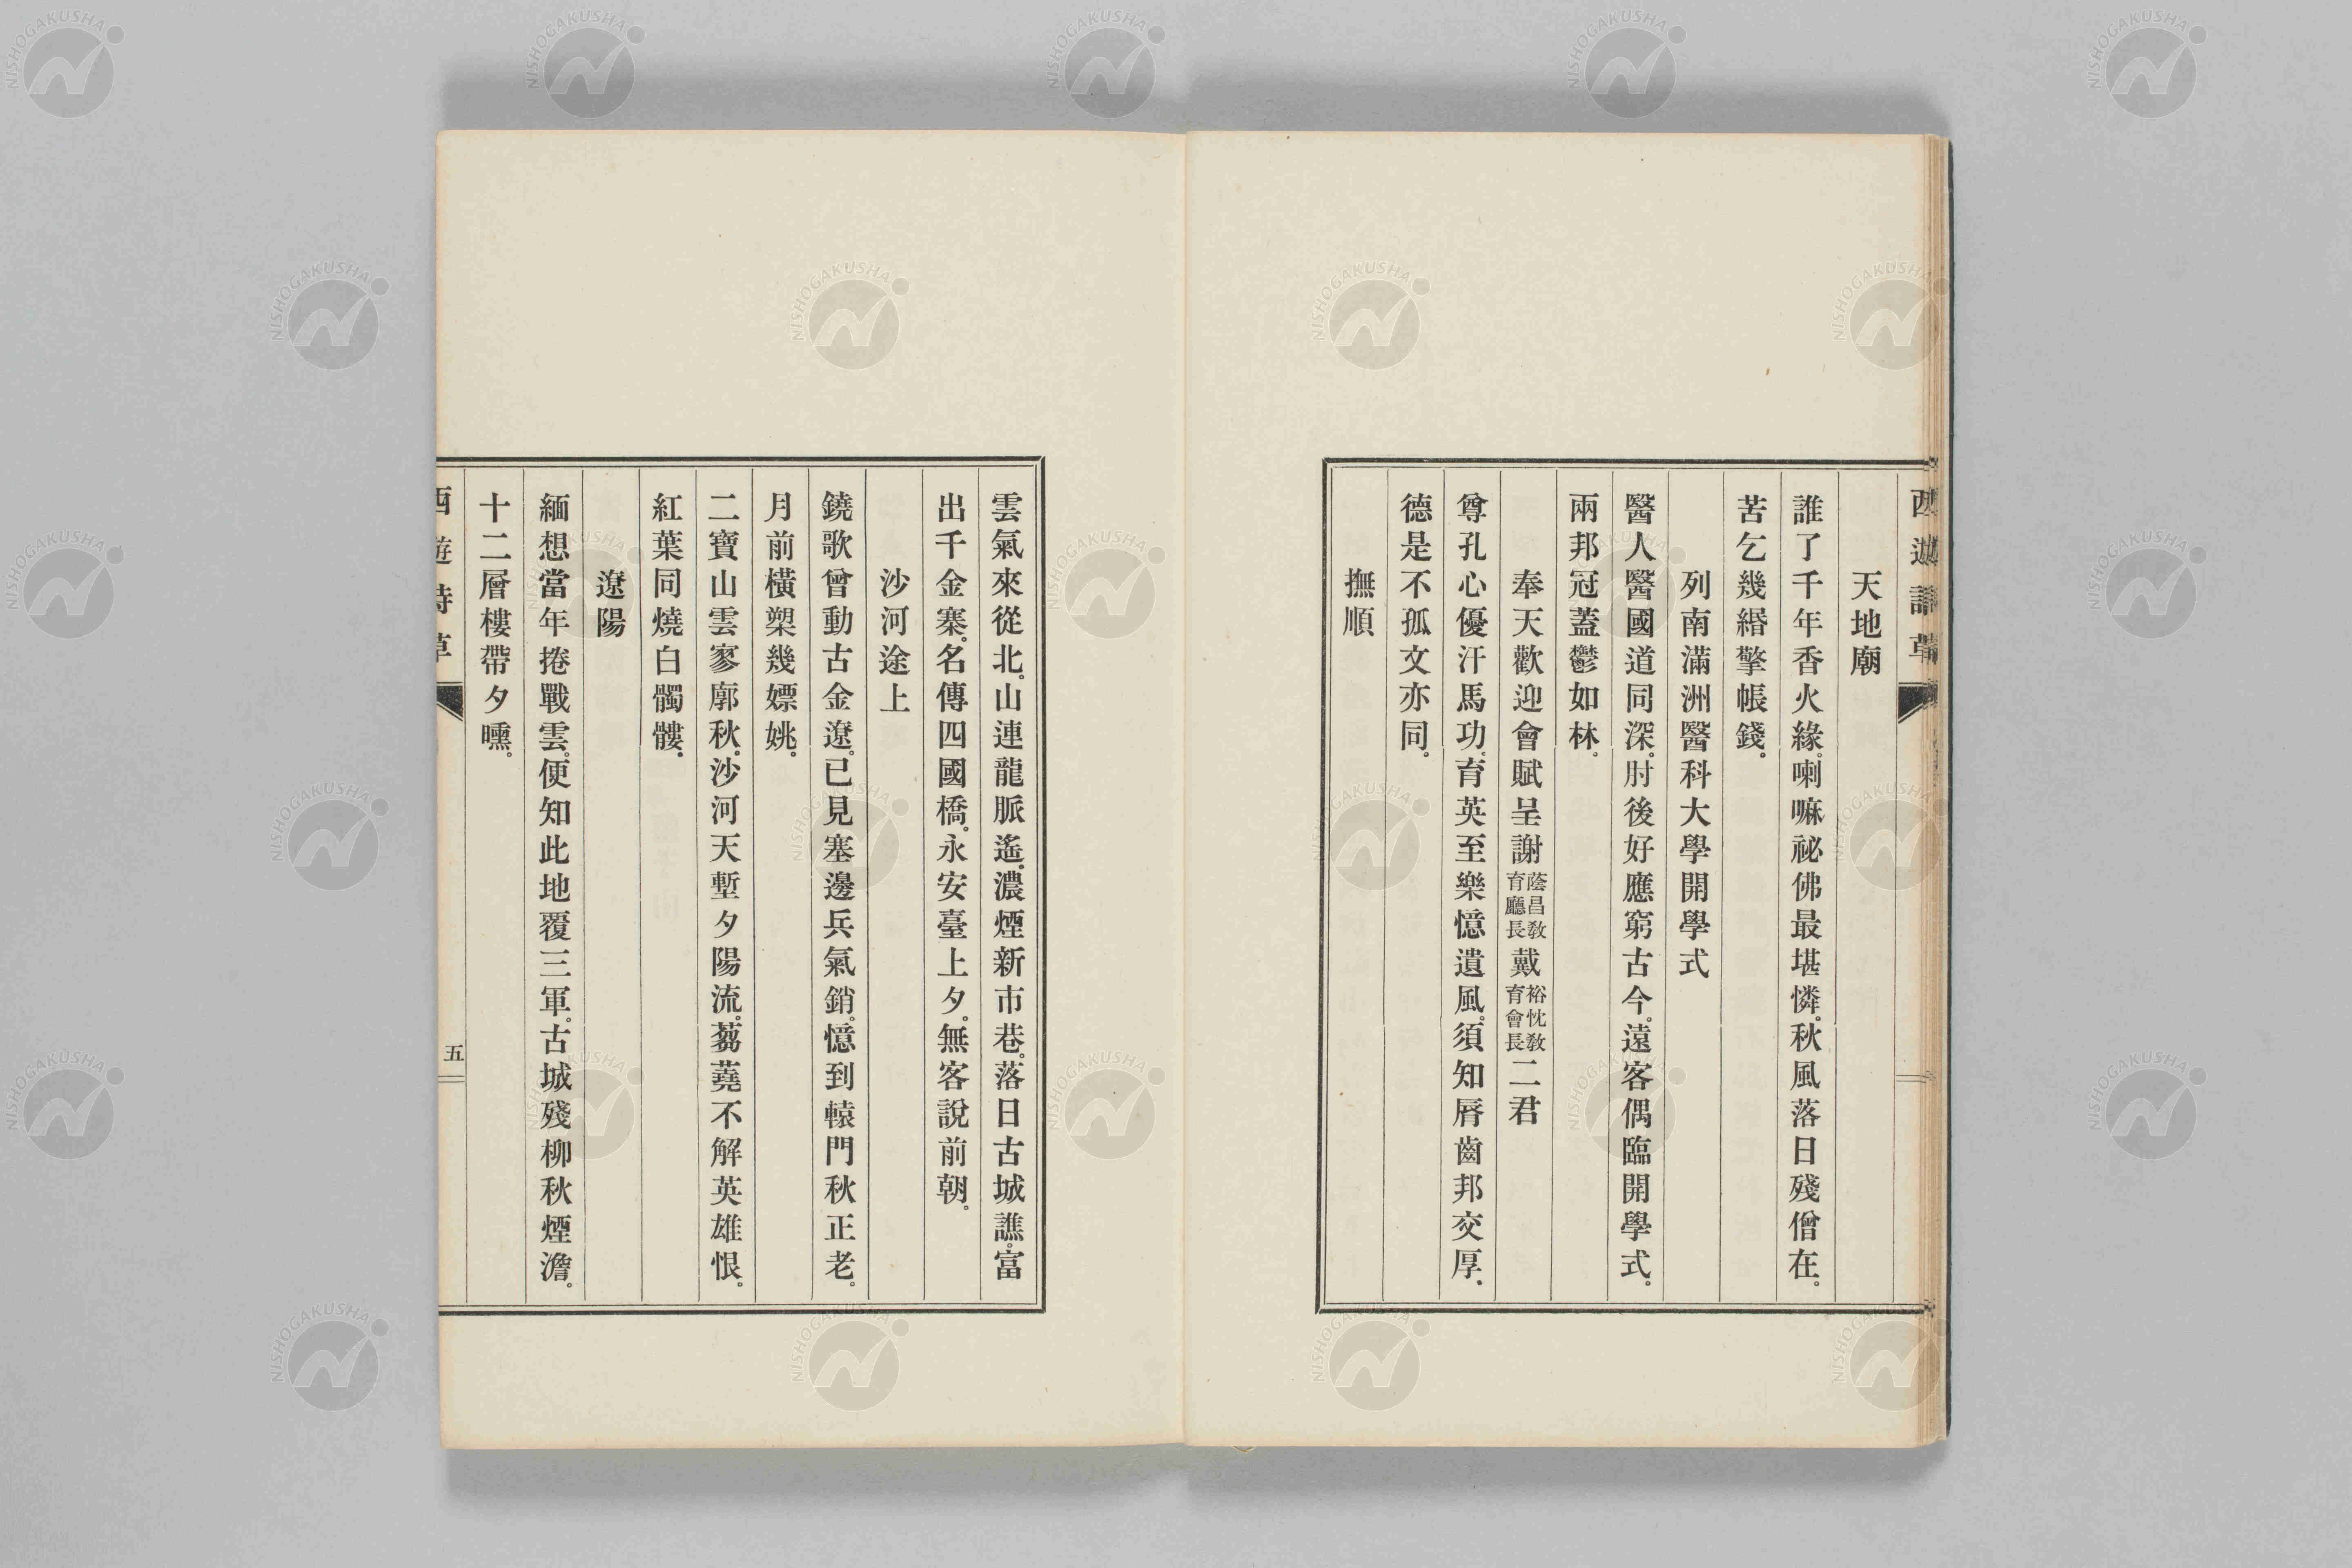 天地廟
誰了千年香火緣。喇嘛祕佛最堪憐。秋風落日殘僧在。
苦乞幾緡擎帳錢。
列南滿洲醫科大學開學式
醫人醫國道同深。肘後好應窮古今。遠客偶臨開學式。
兩邦冠蓋鬱如林。
奉天歡迎會賦呈謝蔭昌敎育廳長戴裕忱敎育會長二君
尊孔心優汗馬功。育英至樂憶遺風。須知脣齒邦交厚。
德是不孤文亦同。
撫順
雲氣來從北。山連龍脈遙。濃煙新市巷。落日古城譙。富
出千金寨。名傳四國橋。永安臺上夕。無客說前朝。
沙河途上
鐃歌曾動古金遼。已見塞邊兵氣銷。憶到轅門秋正老。
月前橫槊幾嫖姚。
二寶山雲寥廓秋。沙河天塹夕陽流。蒭蕘不解英雄恨。
紅葉同燒白髑髏。
遼陽
緬想當年捲戰雲。便知此地覆三軍。古城殘柳秋煙澹。
十二層樓帶夕曛。
西遊詩草
五
NISHOGAKUSHA